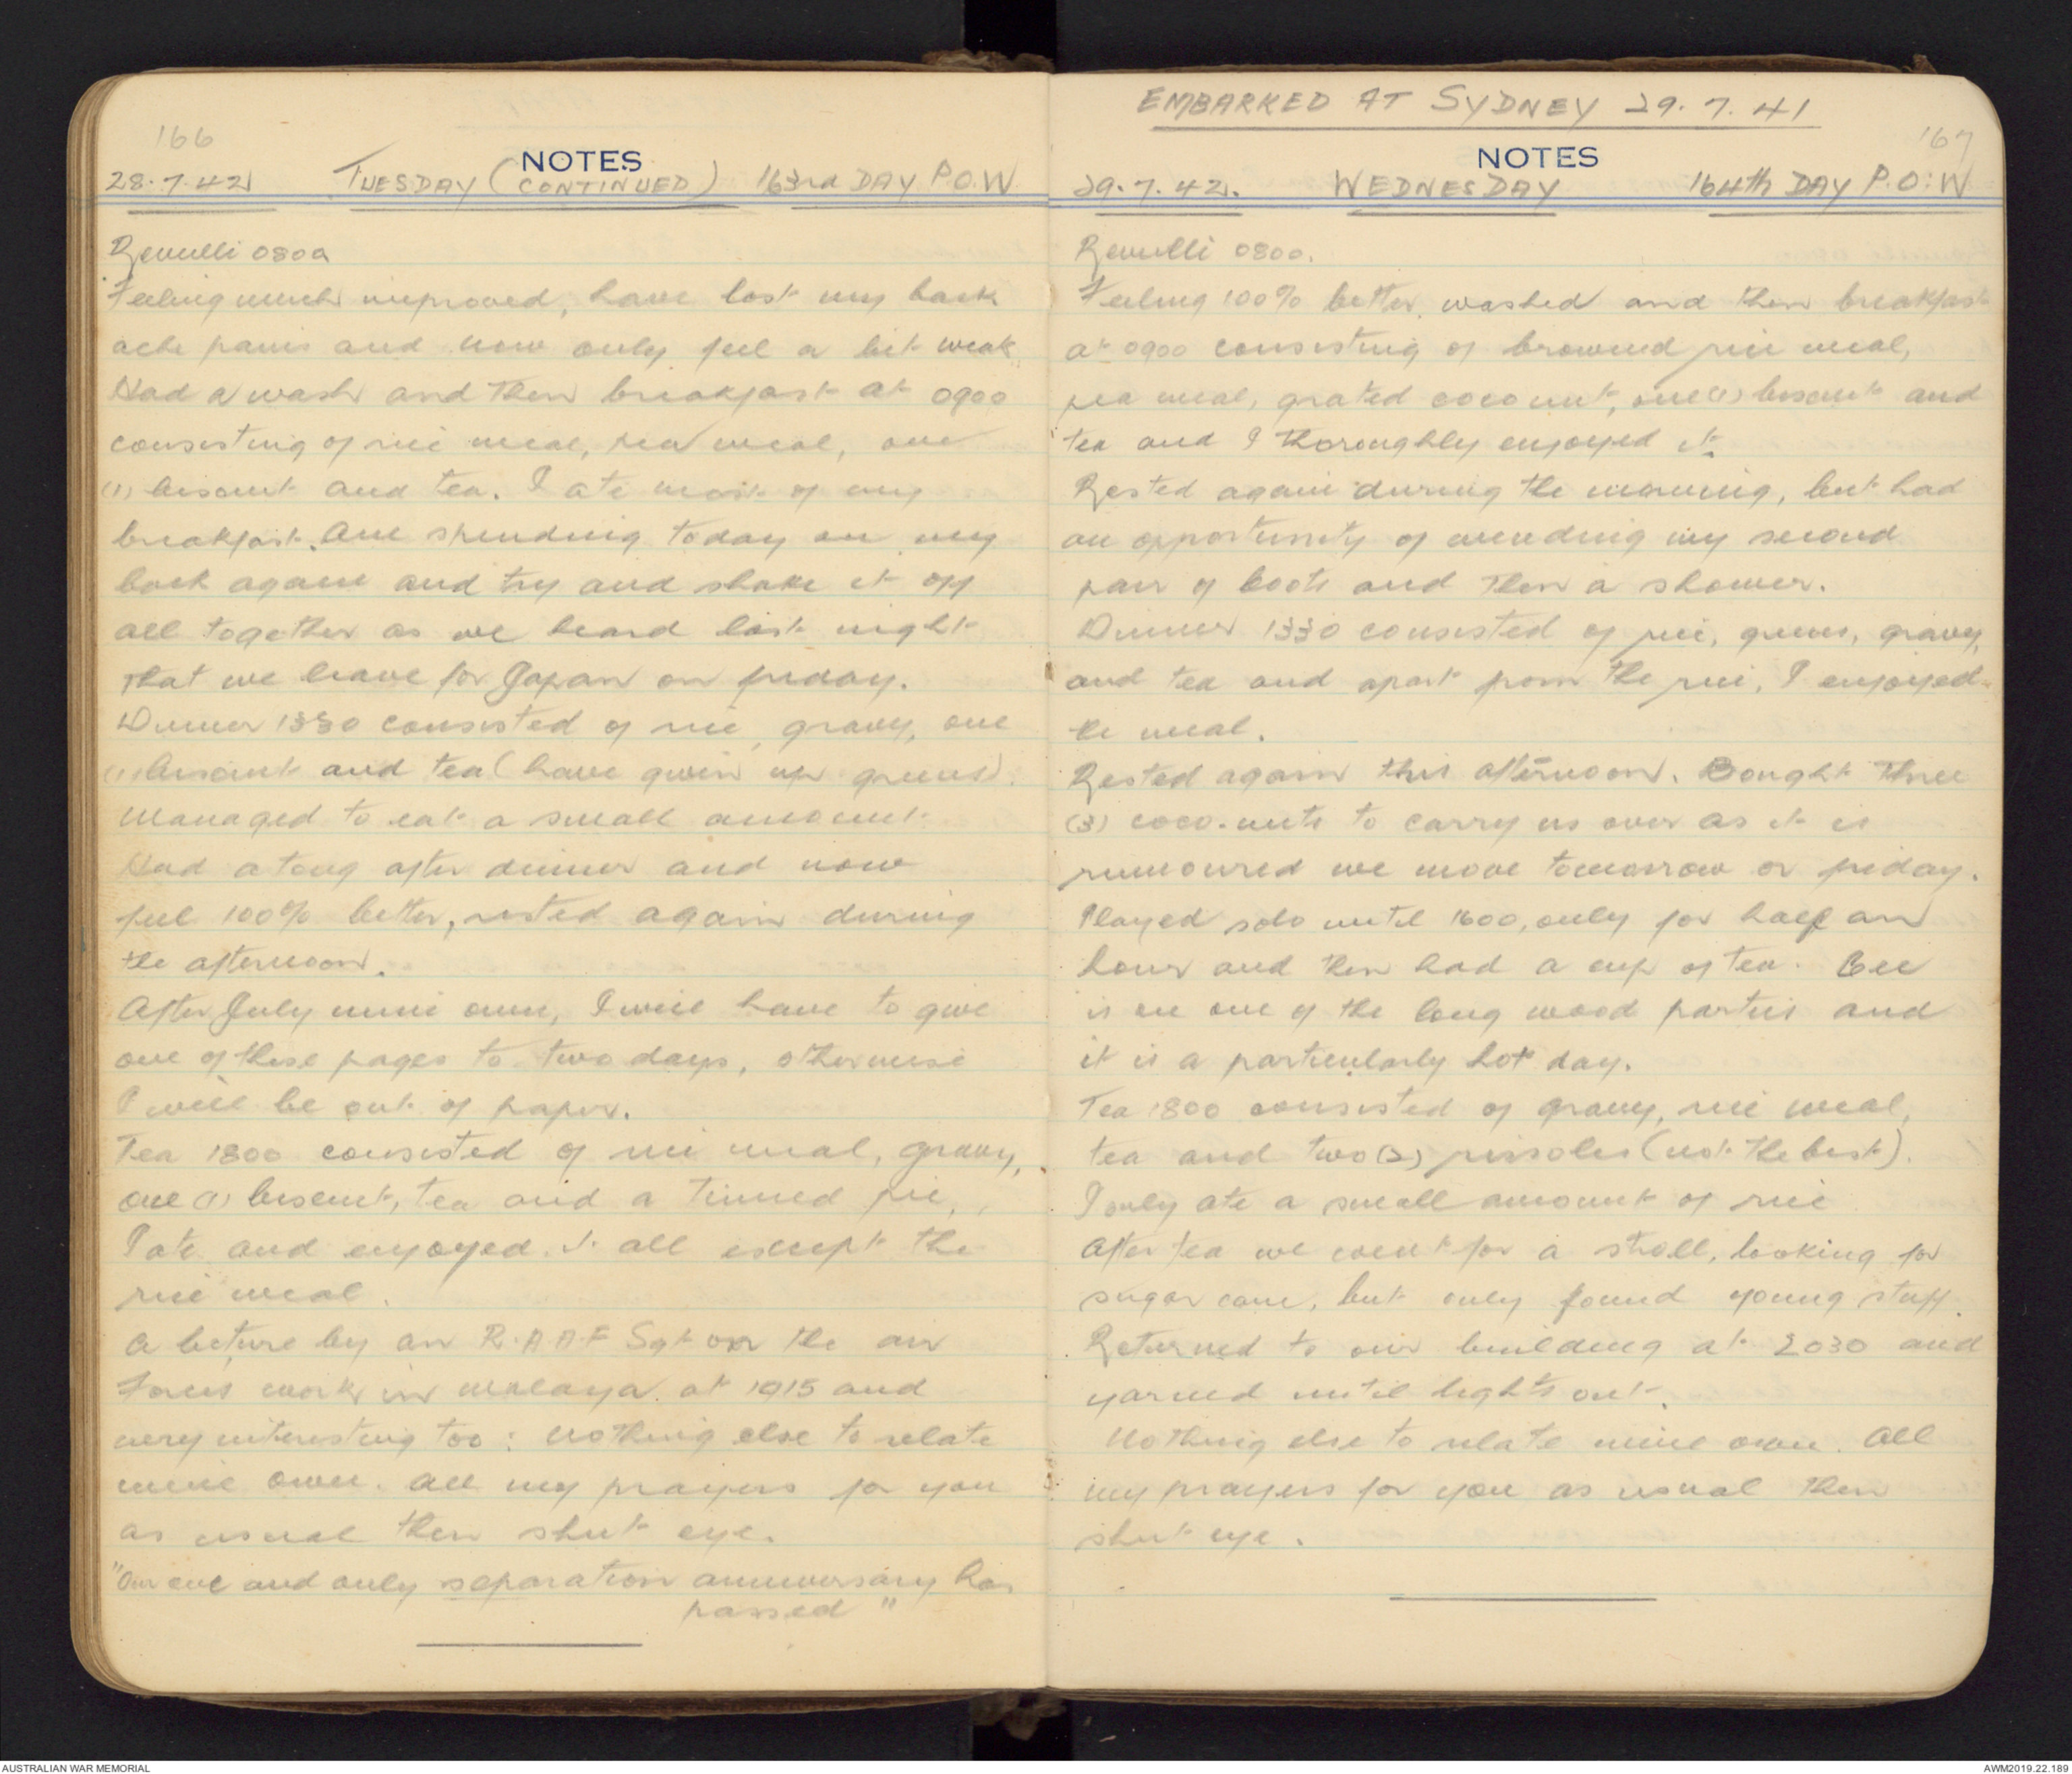 166
NOTES
28.7.42 TUESDAY (CONTINUED) 163rd DAY P.O.W
Revielli 0800
Feeling much improved, have lost my back
ache pains and now only feel a bit weak.
Had a wash and then breakfast at 0900
consisting of rice meal, pea meal, one
(1) biscuit and tea. I ate most of my
breakfast. Am spending today on my
back again and try and shake it off
all together as we heard last night
that we leave for Japan on friday.
Dinner 1330 consisted of rice, gravy, one
(1) biscuit and tea (have given up greens).
Managed to eat a small amount.
Had a tong after dinner and now
feel 100% better, rested again during
the afternoon.
After July mine own, I will have to give
one of these pages to two days, otherwise
I will be out of paper.
Tea 1800 consisted of rice meal, gravy,
one (1) biscuit, tea and a tinned pie,
I ate and enjoyed it all except the
rice meal.
A lecture by an R.A.A.F Sgt on the air
forces work in Malaya at 1915 and
very interesting too: Nothing else to relate
mine own. All my prayers for you
as usual then shut eye.
"Our one and only separation anniversary has
passed"
EMBARKED AT SYDNEY 29.7.41
167
NOTES
29.7.42. WEDNESDAY 164th DAY P.O.W
Revielli 0800.
Feeling 100% better, washed and then breakfast
at 0900 consisting of browned rice meal,
pea meal, grated coconut, one (1) biscuit and
tea and I thoroughly enjoyed it.
Rested again during the morning, but had
an opportunity of mending my second
pair of boots and then a shower.
Dinner 1330 consisted of rice, greens, gravy,
and tea and apart from the rice, I enjoyed
the meal.
Rested again this afternoon. Bought three
(3) coco-nuts to carry us over as it is
rumoured we move tomorrow or friday.
Played solo until 1600, only for half an
hour and then had a cup of tea.
is on one of the long wood parties and
it is a particularly hot day.
Tea 1800 consisted of gravy, rice meal,
tea and two (2) rissoles (not the best).
I only ate a small amount of rice
After tea we went for a stroll, looking for
sugar cane, but only found young stuff.
Returned to our building at 2030 and
yarned until lights out.
Nothing else to relate mine own. All
my prayers for you as usual then
shut eye.
AUSTRALIAN WAR MEMORIAL
AWM2019.22.189